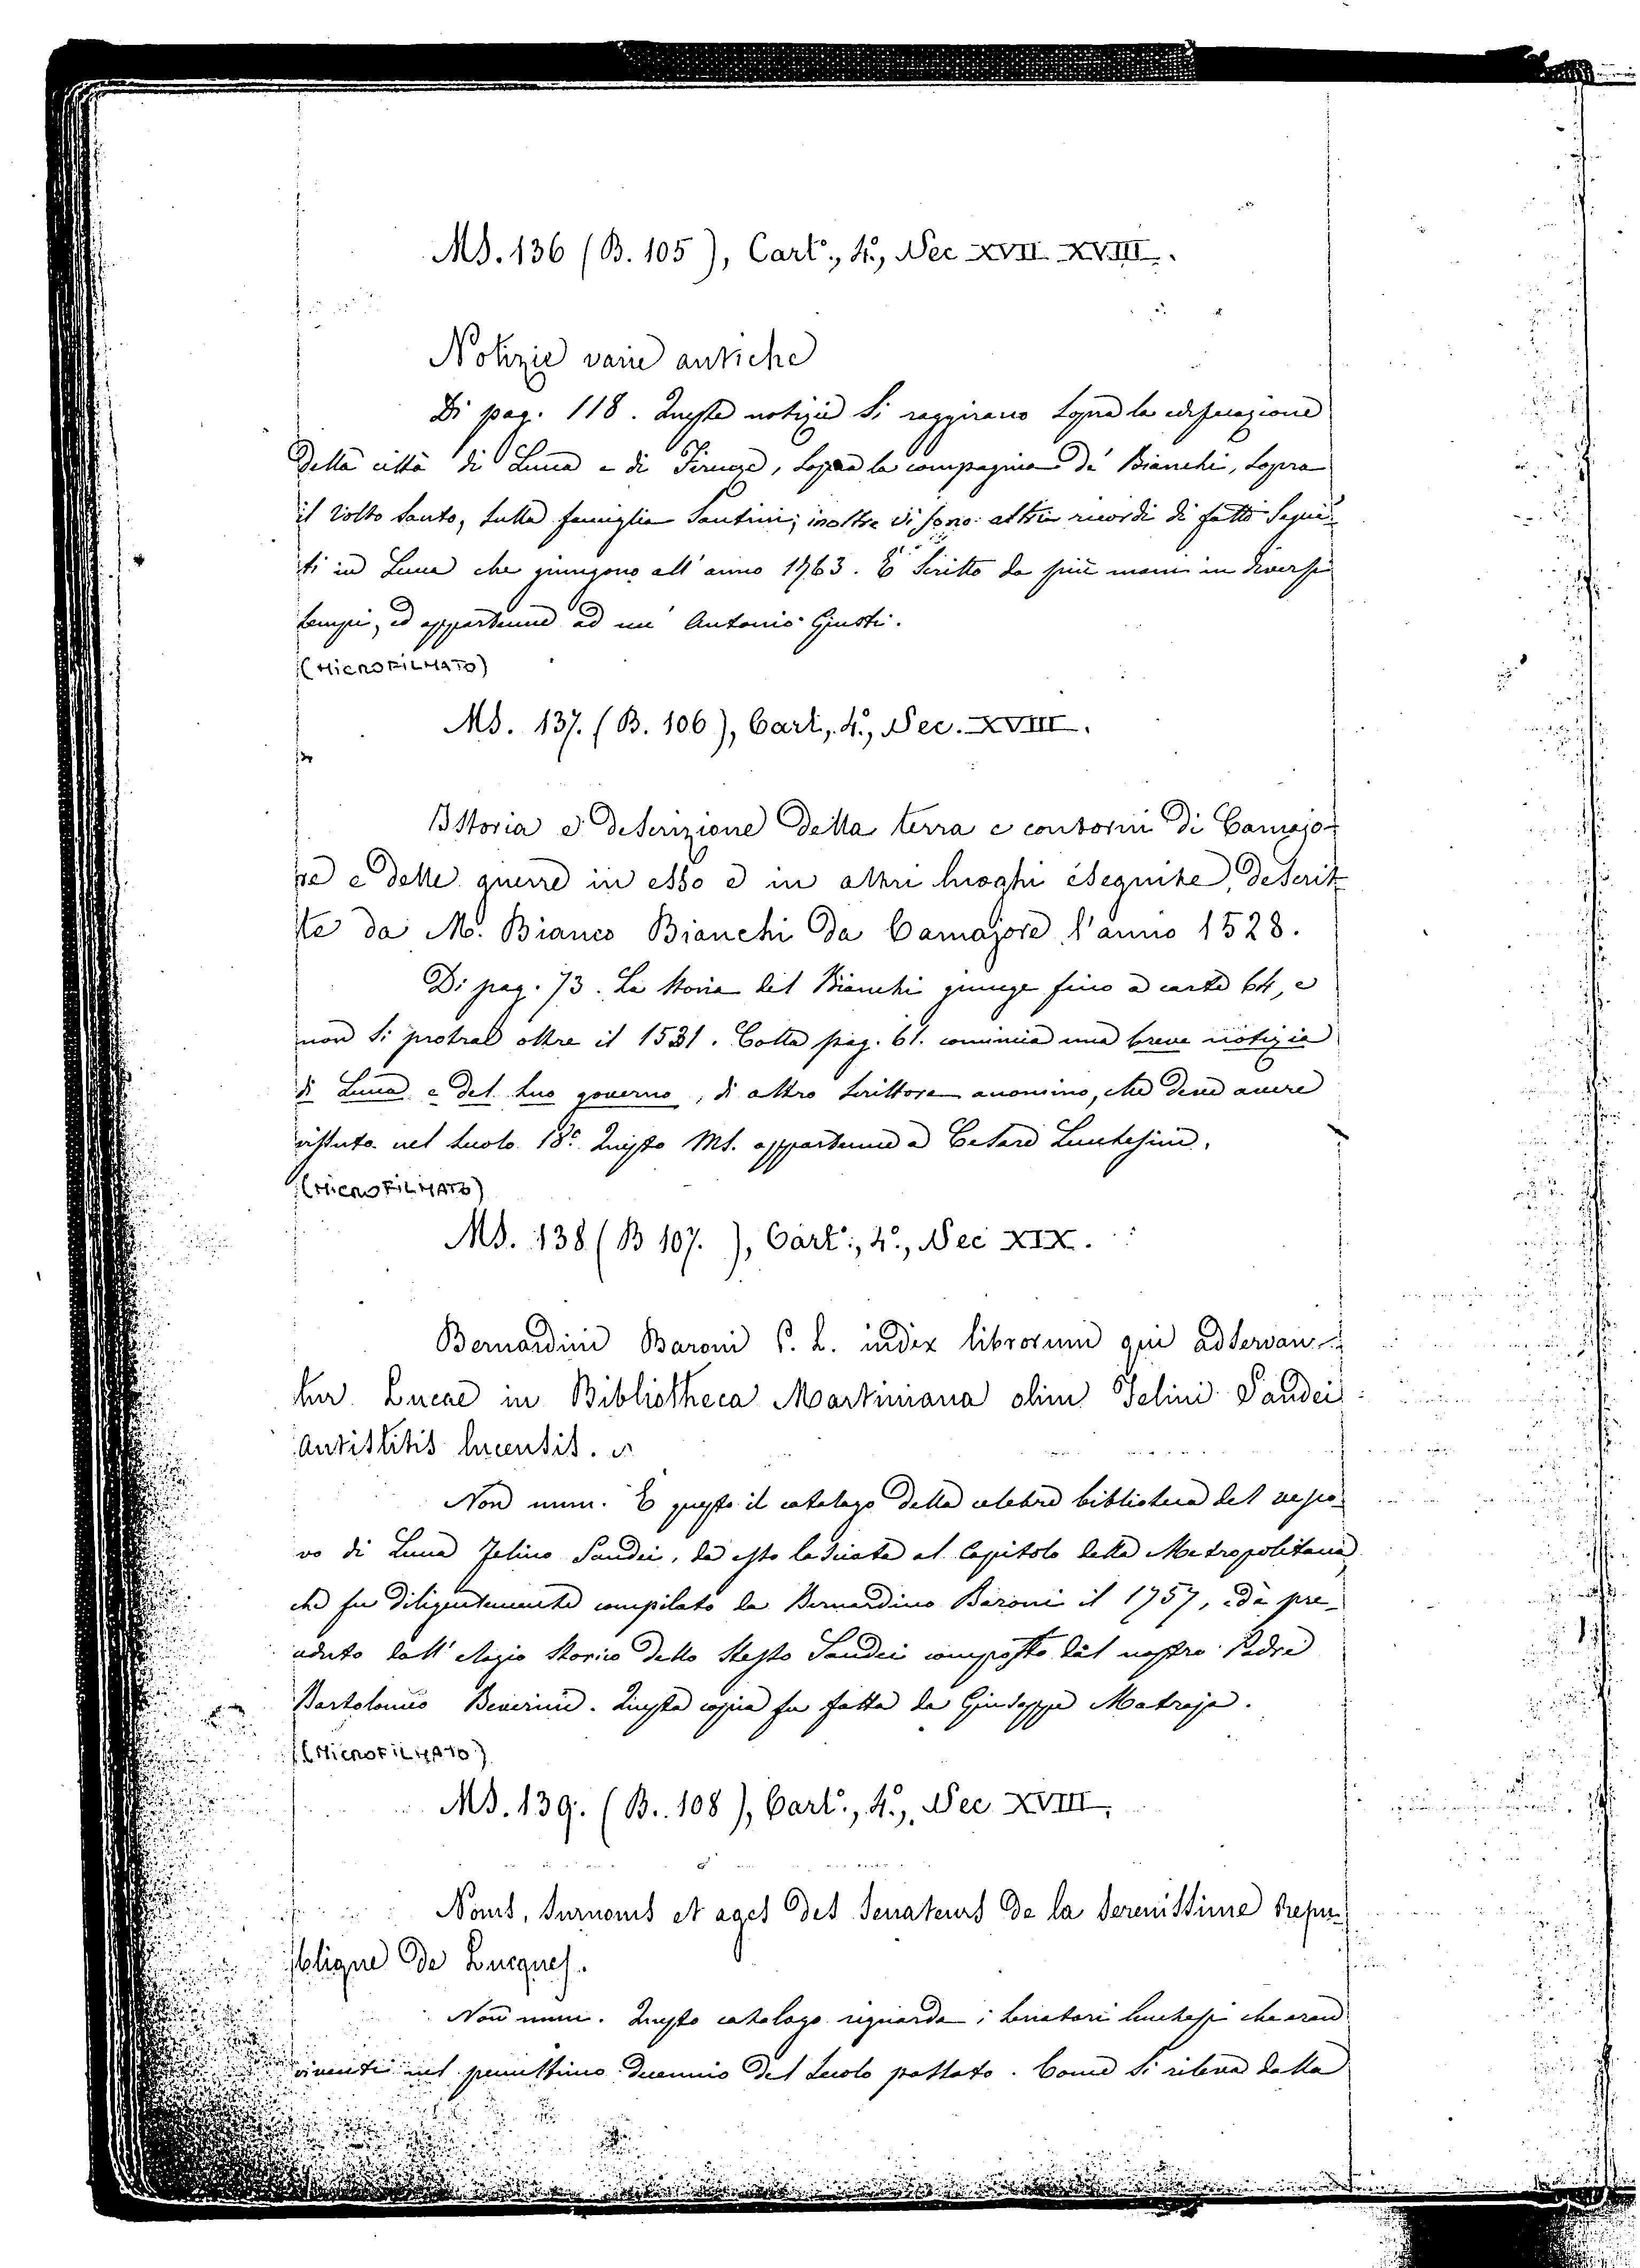 MS. 136 (B. 105), Cart°, 4°, Sec XVII XVIII.
Notizie varie antiche
Di pag. 118. Queste notizie si raggirano sopra la edificazione
della città di Lucca e di Firenze, sopra la compagnia de' Bianchi, sopra
il Volto Santo, sulla famiglia Santini; inoltre vi sono altri ricordi di fatti segui-
ti in Lucca che giungono all' anno 1763. È scritto da più mani in diversi
tempi, ed appartenne ad un Antonio Giusti.
(MICROFILMATO)
MS. 137. (B. 106), Cart., 4°, Sec. XVIII.
Istoria e descrizione della terra e contorni di Camajo-
re e delle guerre in esso e in altri luoghi eseguite, descrit-
te da M. Bianco Bianchi da Camajore l'anno 1528.
Di pag. 73. La storia del Bianchi giunge fino a carte 64, e
non si protrae oltre il 1531. Colla pag. 61. comincia una breve notizia
di Lucca e del suo governo, di altro scrittore anonimo, che deve avere
vissuto nel secolo 18°. Questo MS. appartenne a Cesare Lucchesini.
(MICROFILMATO)
MS. 138 (B 107. ), Cart°, 4°, Sec XIX.
Bernardini Baroni P. L. index librorum qui adservan-
tur Lucae in Bibliotheca Martiniana olim Felini Sandei
Antistitis lucensis.
Non num. È questo il catalogo della celebre biblioteca del vesco-
vo di Lucca Felino Sandei, da esso lasciata al Capitolo della Metropolitana,
che fu diligentemente compilato da Bernardino Baroni il 1757, ed è pre-
ceduto dall' elogio storico dello stesso Sandei composto dal nostro Padre
Bartolomeo Beverini. Questa copia fu fatta da Giuseppe Matraja.
(MICROFILMATO)
MS. 139. (B. 108), Cart°, 4°, Sec XVIII.
Noms, surnoms et ages des senateurs de la serenissime Repu-
blique de Lucques.
Non num. Questo catalogo riguarda i senatori lucchesi che eran
viventi nel penultimo decennio del secolo passato. Come si rileva dalla